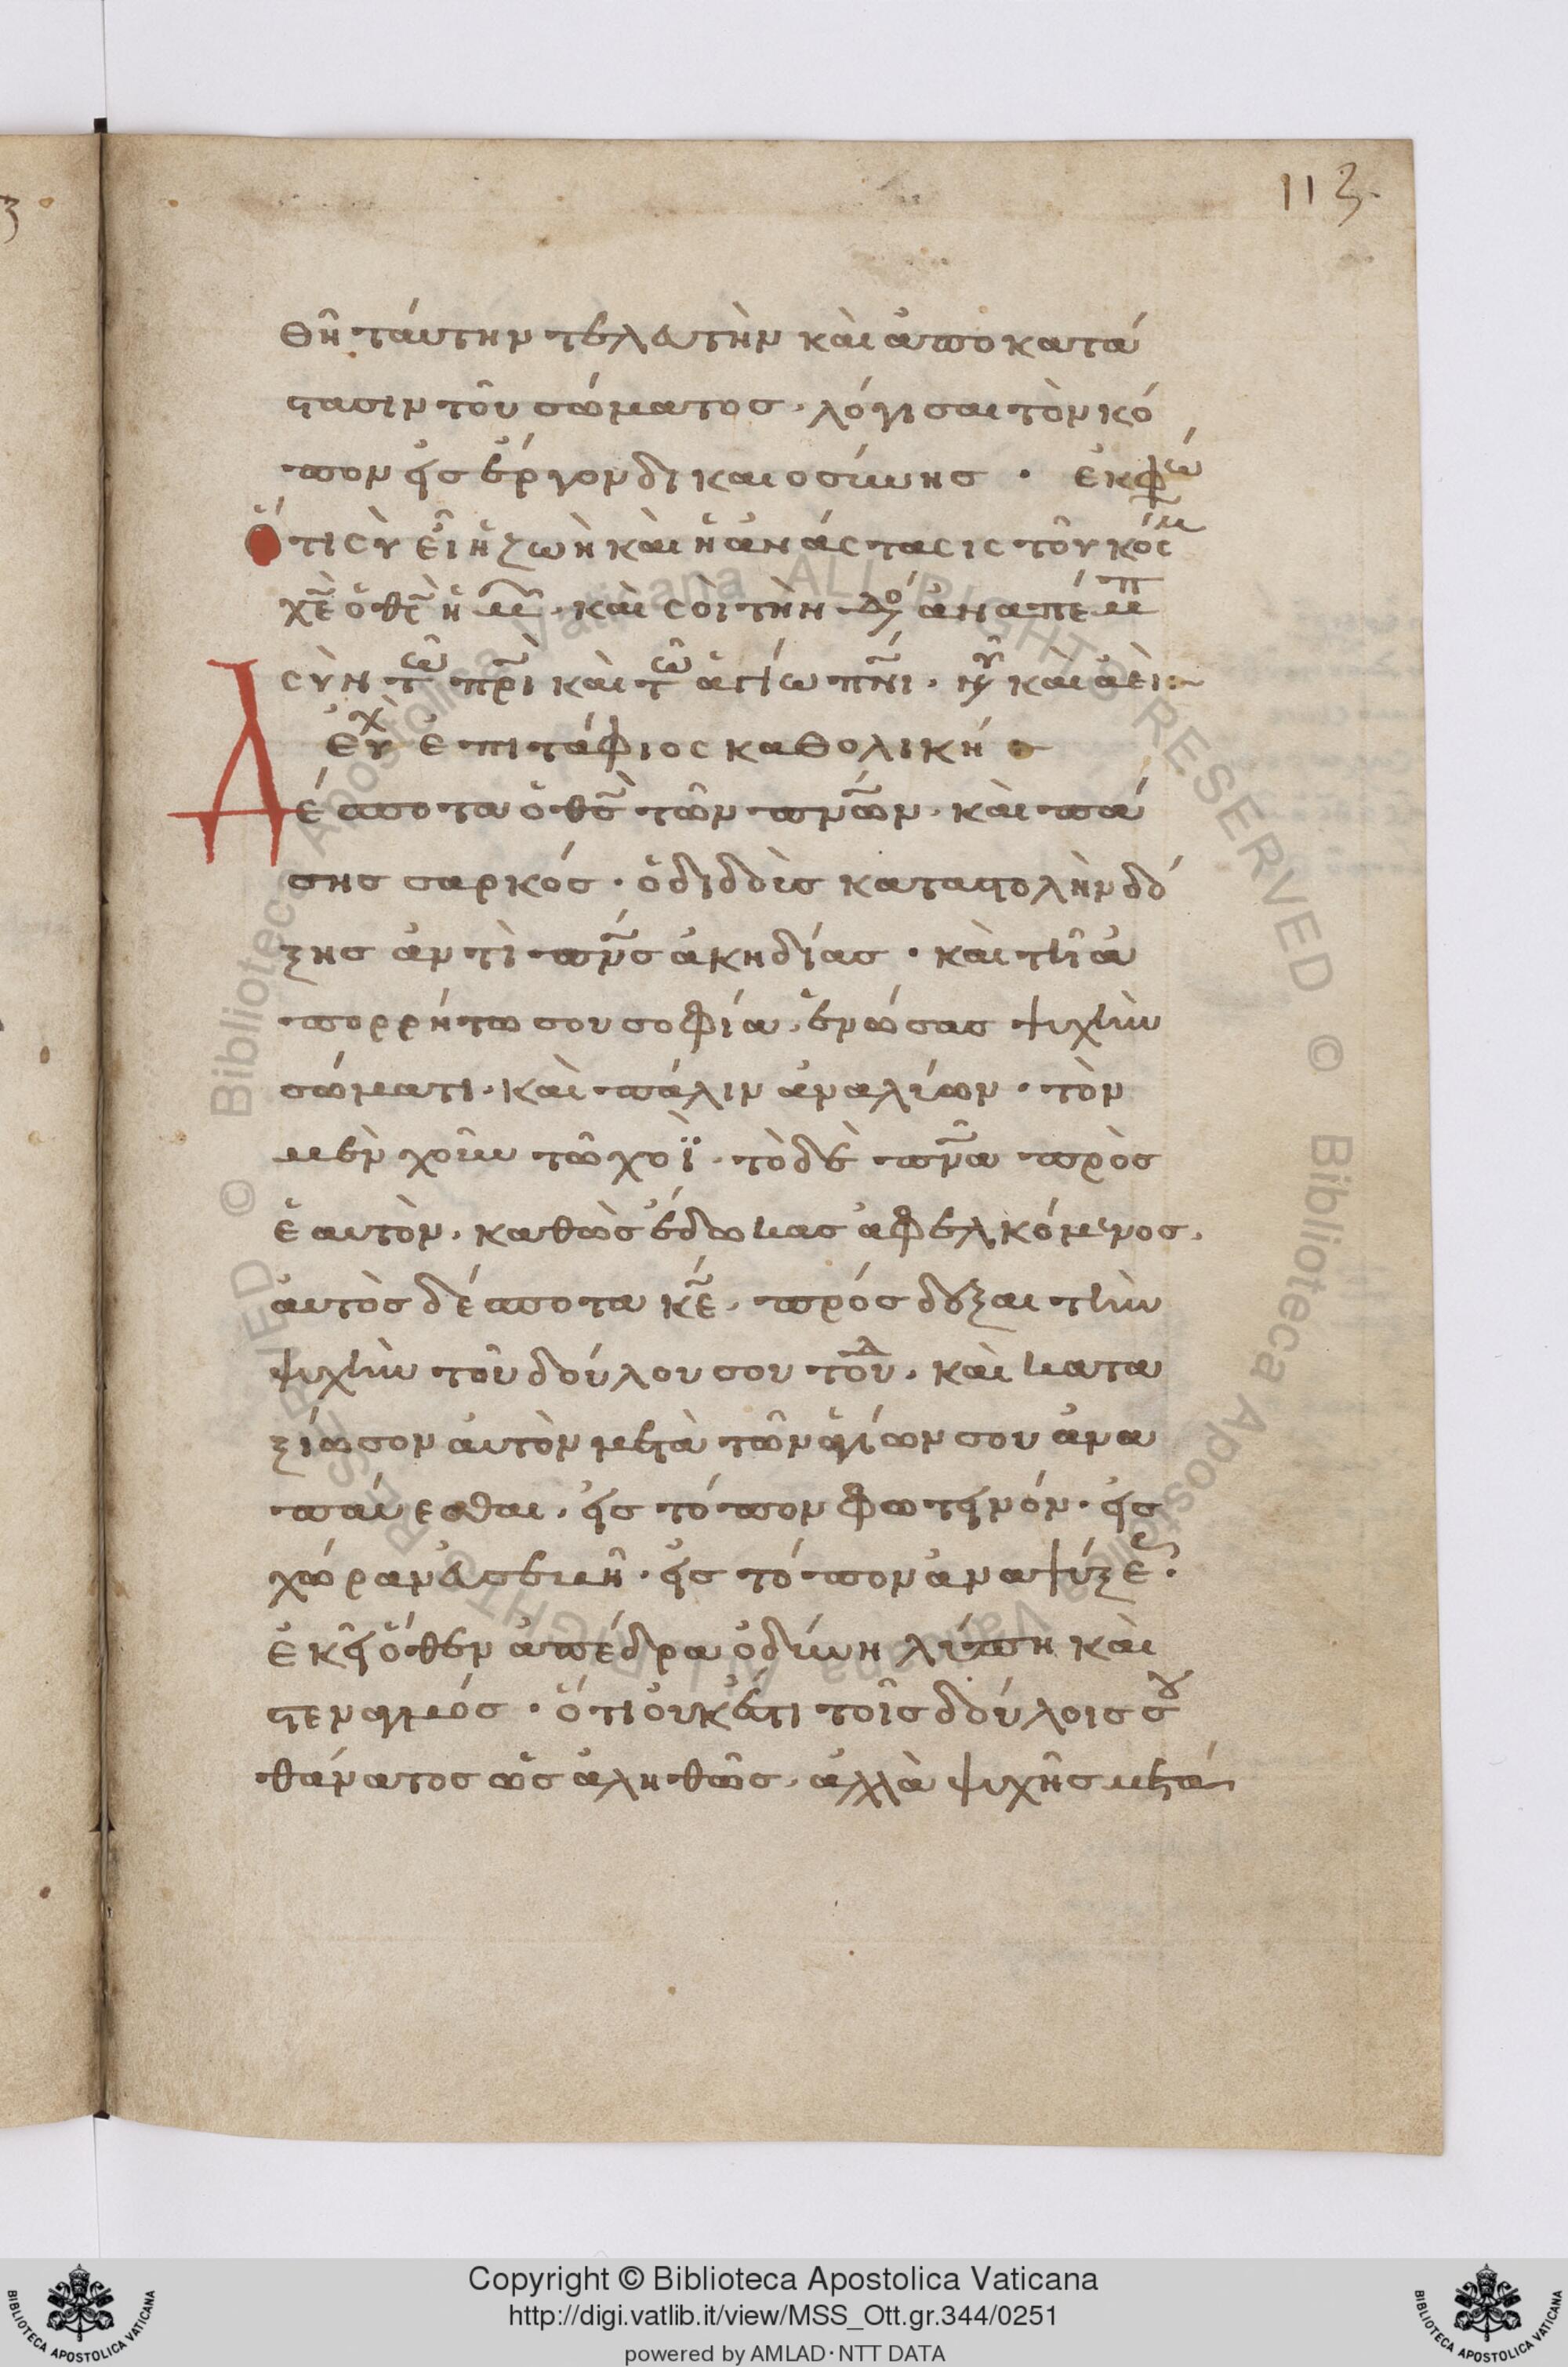 113
θῆ ταύτην τελευτὴν καὶ ἀποκατά
στασιν τοῦ σώματος · λόγισαι τὸν κό
πον εἰς ἔργον δικαιοσύνης · ἐκφώ
Ὅτι σὺ εἶ ἡ ζωὴ καὶ ἡ ἀνάστασις τοῦ κόσμ
χε̅ ὁ θς̅ ἡμ · καὶ σοὶ τὴν δο ἀναπέμπ
σὺν τῶ πρι̅ καὶ τῶ ἁγίω πνι̅ · νῦ καὶ ἀεὶ
εὐχ ἐπιτάφιος καθολική
Δέσποτα ὁ θς̅ τῶν πνω̅ν · καὶ πά
σης σαρκός · ὁ διδοὺς καταστολὴν δό
ξης ἀντὶ πνς̅ ἀκηδίας · καὶ τῆ ἀ
πορρήτω σου σοφία · ἑνώσας ψυχὴν
σώματι · καὶ πάλιν ἀναλύων · τὸν
μὲν χοῦν τῶ χοῒ · τὸ δὲ πνα̅ πρὸς
ἑαυτὸν · καθὼς ἔδωκας ἀφελκόμενος ·
αὐτὸς δέσποτα κε̅ · πρόσδεξαι τὴν
ψυχὴν τοῦ δούλου σου τοῦδ · καὶ κατα
ξίωσον αὐτὸν μετὰ τῶν ἁγίων σου ἀνα
παύεσθαι · εἰς τόπον φωτεινόν · εἰς
χώραν εὐσεβῆ · εἰς τόπον ἀναψύξε ·
ἐκεῖ ὅθεν ἀπέδρα ὀδύνη λύπη καὶ
στεναγμός · ὅτι οὐκ ἔστι τοῖς δούλοις σου
θάνατος ὡς ἀληθῶς · ἀλλὰ ψυχῆς μετά
© Biblioteca Apostolica Vaticana ALL RIGHTS RESERVED
© Biblioteca Apostolica Vaticana ALL RIGHTS RESERVED
Copyright © Biblioteca Apostolica Vaticana
http://digi.vatlib.it/view/MSS_Ott.gr.344/0251
powered by AMLAD·NTT DATA
BIBLIOTECA APOSTOLICA VATICANA
BIBLIOTECA APOSTOLICA VATICANA